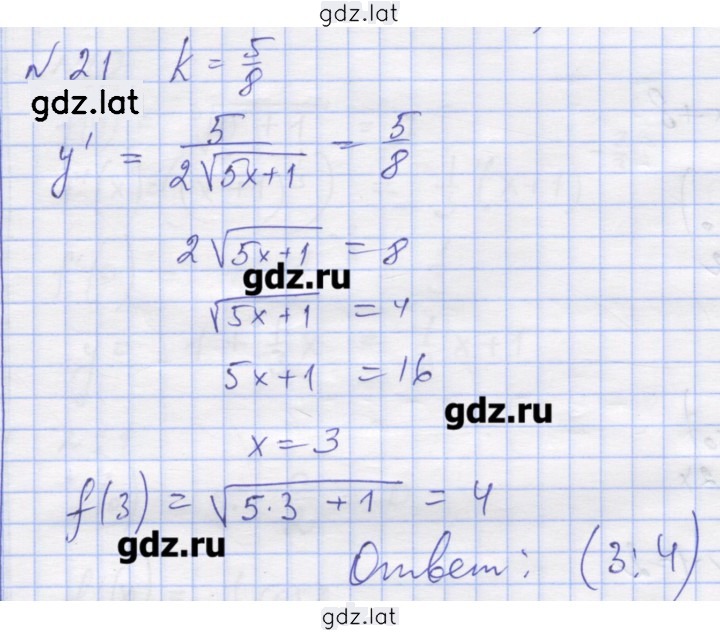 gdz.lat
№ 21 k = 5/8
gdz.lat
y' = 5/(2√(5x+1)) = 5/8
2√(5x+1) = 8
gdz.ru
√(5x+1) = 4
5x+1 = 16
gdz.ru
x = 3
f(3) = √(5·3 + 1) = 4
gdz.ru
Ответ: (3; 4)
gdz.lat